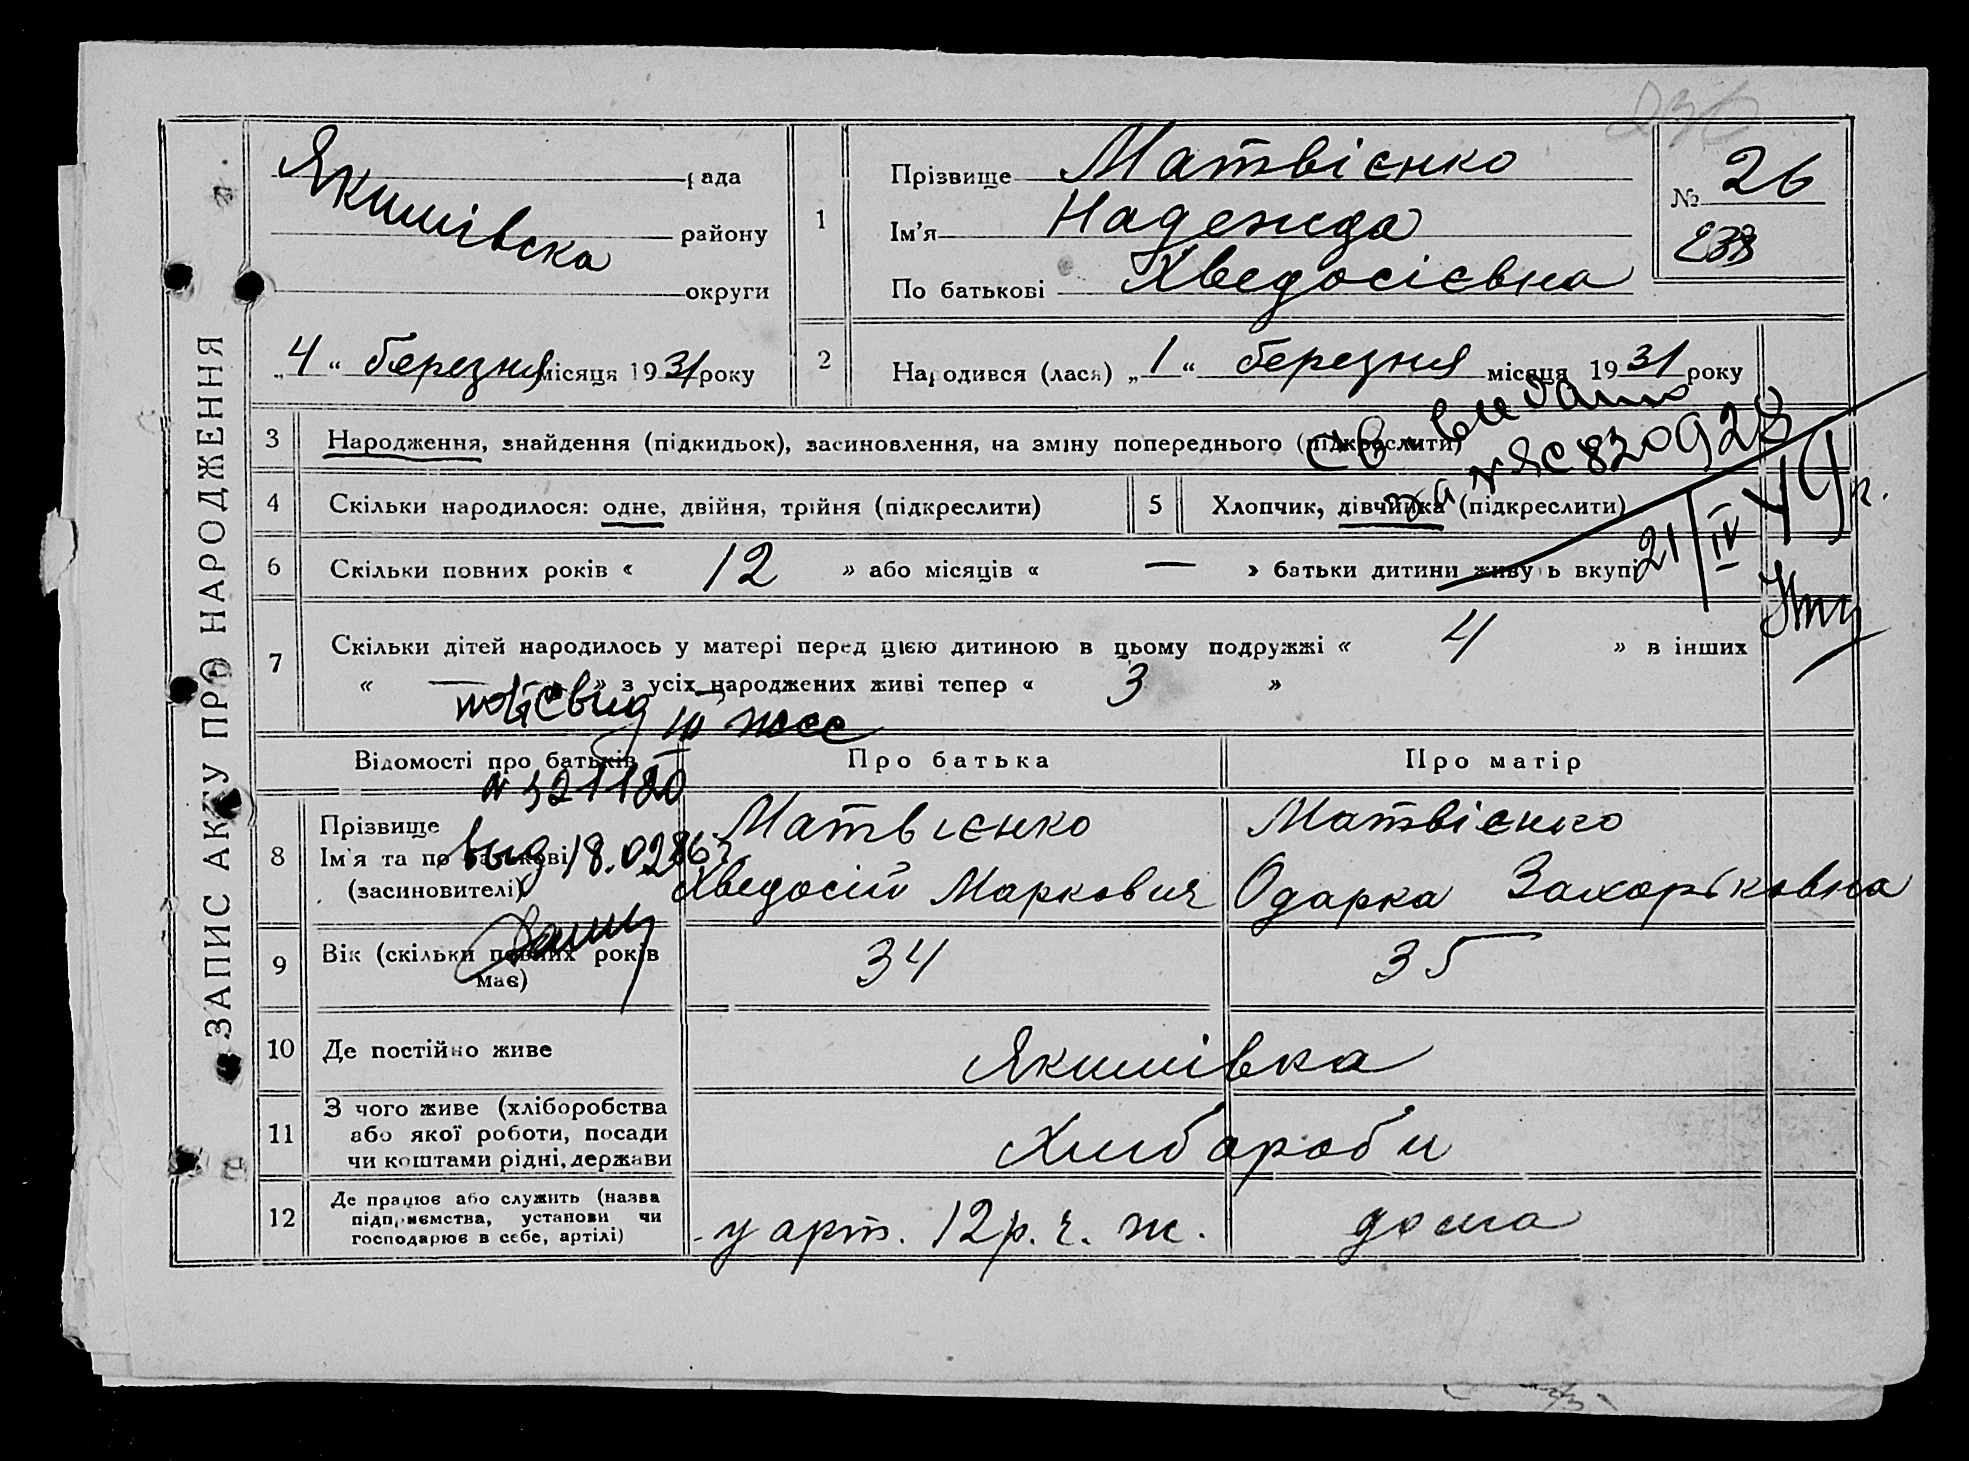 236
ЗАПИС АКТУ ПРО НАРОДЖЕННЯ
Якимівска
рада
району
округи
„4“ березня місяця 1931 року
1
Прізвище Матвієнко
Ім'я Надежда
По батькові Хведосієвна
№ 26
238
2 Народився (лася) „1“ березня місяця 1931 року
3 Народження, знайдення (підкидьок), засиновлення, на зміну попереднього (підкреслити)
св. видано
за № ЯС 820928
21/IV 49 г.
4 Скільки народилося: одне, двійня, трійня (підкреслити)
5 Хлопчик, дівчинка (підкреслити)
6 Скільки повних років « 12 » або місяців « — » батьки дитини живуть вкупі
7 Скільки дітей народилось у матері перед цією дитиною в цьому подружжі « 4 » в інших
« — » з усіх народжених живі тепер « 3 »
№ 321180
вид 18.0286г.
Відомості про батьків
Про батька
Про матір
8 Прізвище
Ім'я та по батькові
(засиновителі)
Матвієнко
Хведосій Маркович
Матвієнко
Одарка Захарʼковна
9 Вік (скільки повних років має)
34
35
10 Де постійно живе
Якимівка
11 З чого живе (хліборобства
або якої роботи, посади
чи коштами рідні, держави
Хлиборобы
12 Де працює або служить (назва
підприємства, установи чи
господарює в себе, артілі)
у арт. 12 р. г. ж.
дома